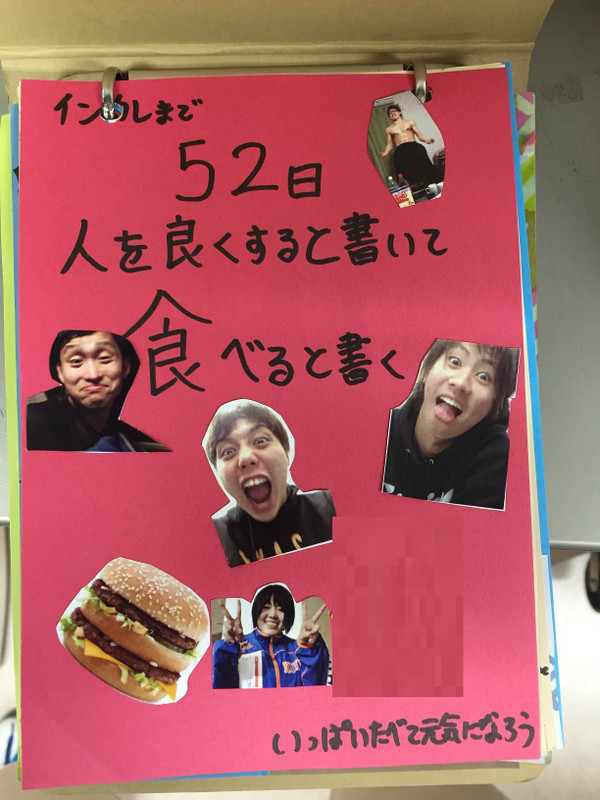 インカレまで
52日
人を良くすると書いて
食べると書く
いっぱいたべて元気になろう